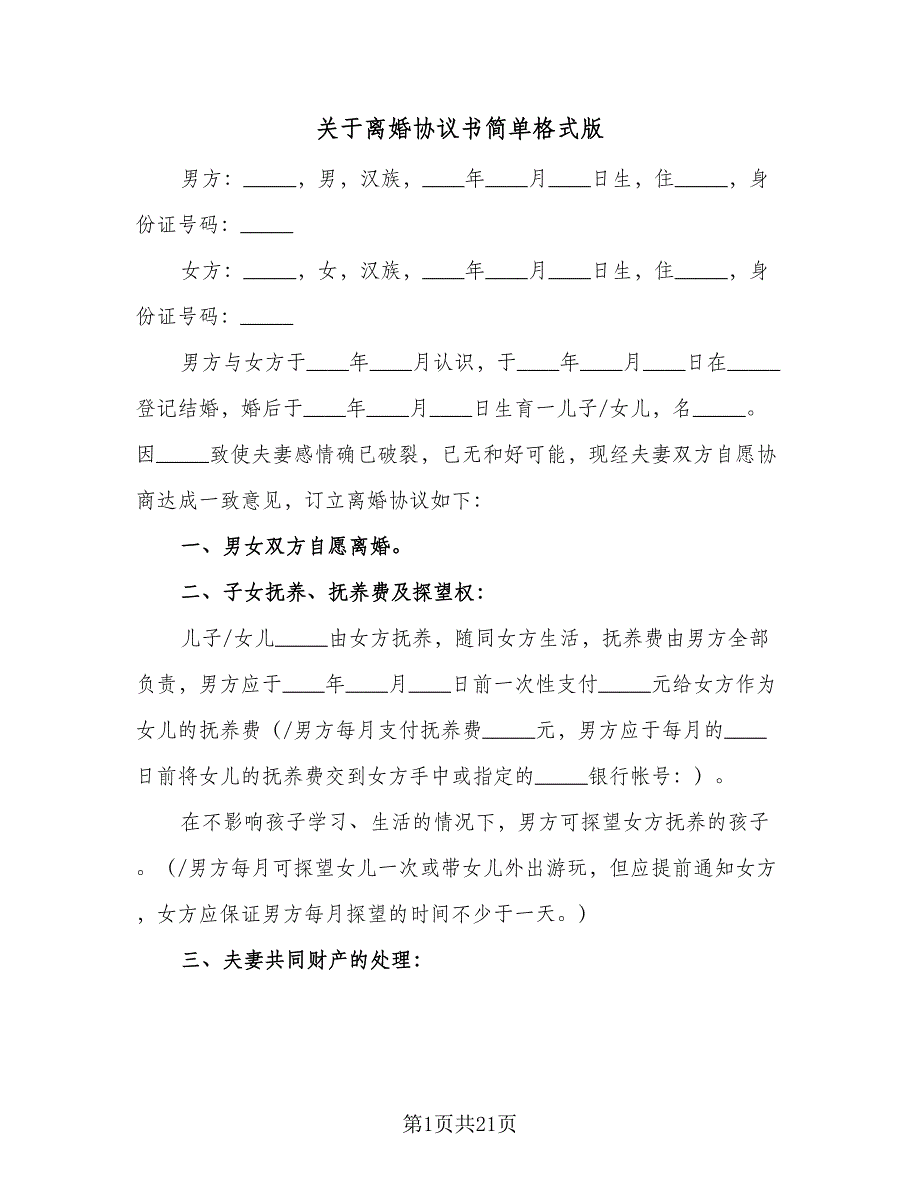 关于离婚协议书简单格式版
男方：_____，男，汉族，____年____月____日生，住_____，身
份证号码：_____
女方：_____，女，汉族，____年____月____日生，住_____，身
份证号码：_____
男方与女方于____年____月认识，于____年____月____日在_____
登记结婚，婚后于____年____月____日生育一儿子/女儿，名_____。
因_____致使夫妻感情确已破裂，已无和好可能，现经夫妻双方自愿协
商达成一致意见，订立离婚协议如下：
一、男女双方自愿离婚。
二、子女抚养、抚养费及探望权：
儿子/女儿_____由女方抚养，随同女方生活，抚养费由男方全部
负责，男方应于____年____月____日前一次性支付_____元给女方作为
女儿的抚养费（/男方每月支付抚养费_____元，男方应于每月的____
日前将女儿的抚养费交到女方手中或指定的_____银行帐号：）。
在不影响孩子学习、生活的情况下，男方可探望女方抚养的孩子
。（/男方每月可探望女儿一次或带女儿外出游玩，但应提前通知女方
，女方应保证男方每月探望的时间不少于一天。）
三、夫妻共同财产的处理：
第1页共21页